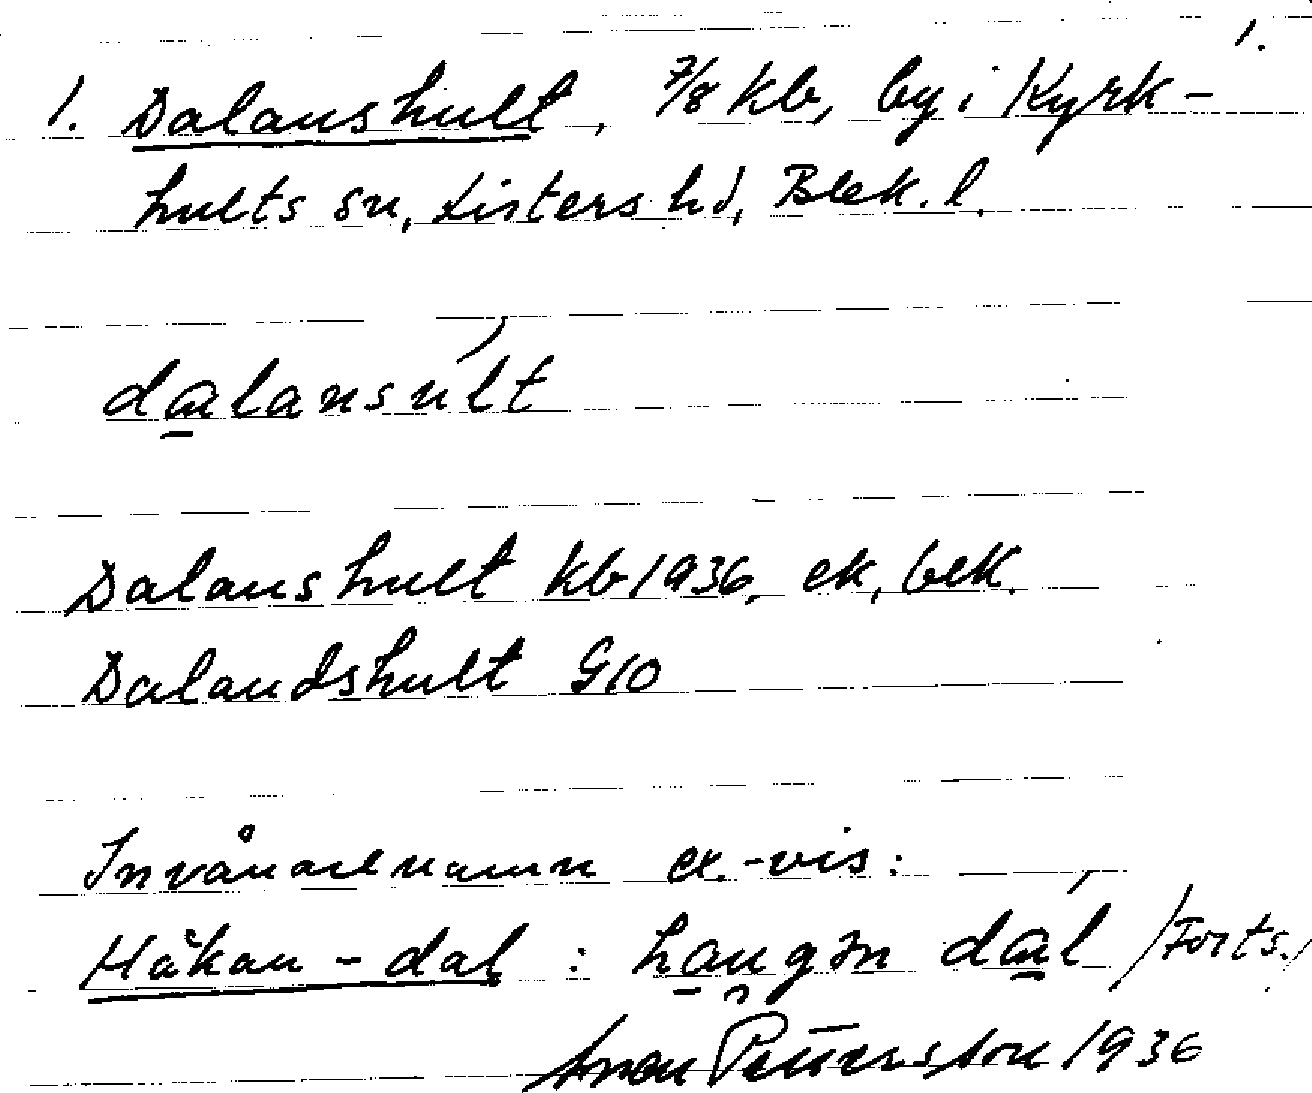 1.
1. Dalanshult, 7/8 kb, by i Kyrk-
hults sn, Listers hd, Blek. l.
dalansult
Dalanshult kb 1936, ek, blek.
Dalandshult G10
Invånarenamn ex.-vis:
Håkan-dal : haugən dal /Forts./
Pettersson 1936